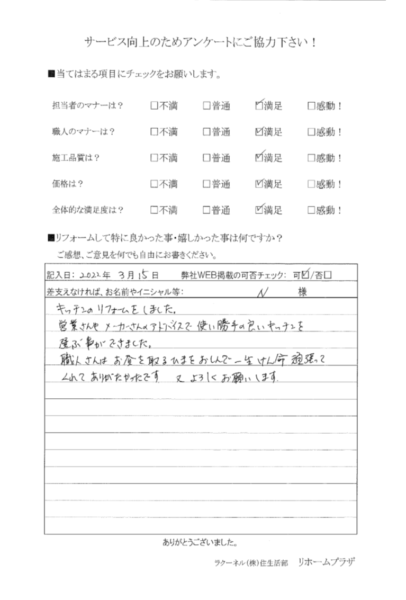 サービス向上のためアンケートにご協力下さい！
■当てはまる項目にチェックをお願いします。
担当者のマナーは？ □不満 □普通 ☑満足 □感動！
職人のマナーは？ □不満 □普通 ☑満足 □感動！
施工品質は？ □不満 □普通 ☑満足 □感動！
価格は？ □不満 □普通 ☑満足 □感動！
全体的な満足度は？ □不満 □普通 ☑満足 □感動！
■リフォームして特に良かった事・嬉しかった事は何ですか？
ご感想、ご意見を何でも自由にお書きください。
記入日：2022年 3月 15日 弊社WEB掲載の可否チェック： 可☑/否□
差支えなければ、お名前やイニシャル等： N 様
キッチンのリフォームをしました。
営業さんやメーカーさんのアドバイスで使い勝手の良いキッチンを
選ぶ事ができました。
職人さんは お金を取るひまをおしんで一生けん命 頑張って
くれて ありがたかったです 又 よろしくお願いします
ありがとうございました。
ラクーネル（株）住生活部 リホームプラザ